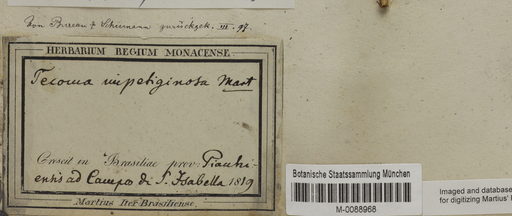 Von Bureau & Schumann zurückgek. III. 97.
HERBARIUM REGIUM MONACENSE.
Tecoma impetiginosa Mart
Crescit in Brasiliae prov: Piauhi-
ensis ad Campo di S. Isabella 1819
Martius Iter Brasiliense.
Botanische Staatssammlung München
M-0088968
Imaged and database
for digitizing Martius'